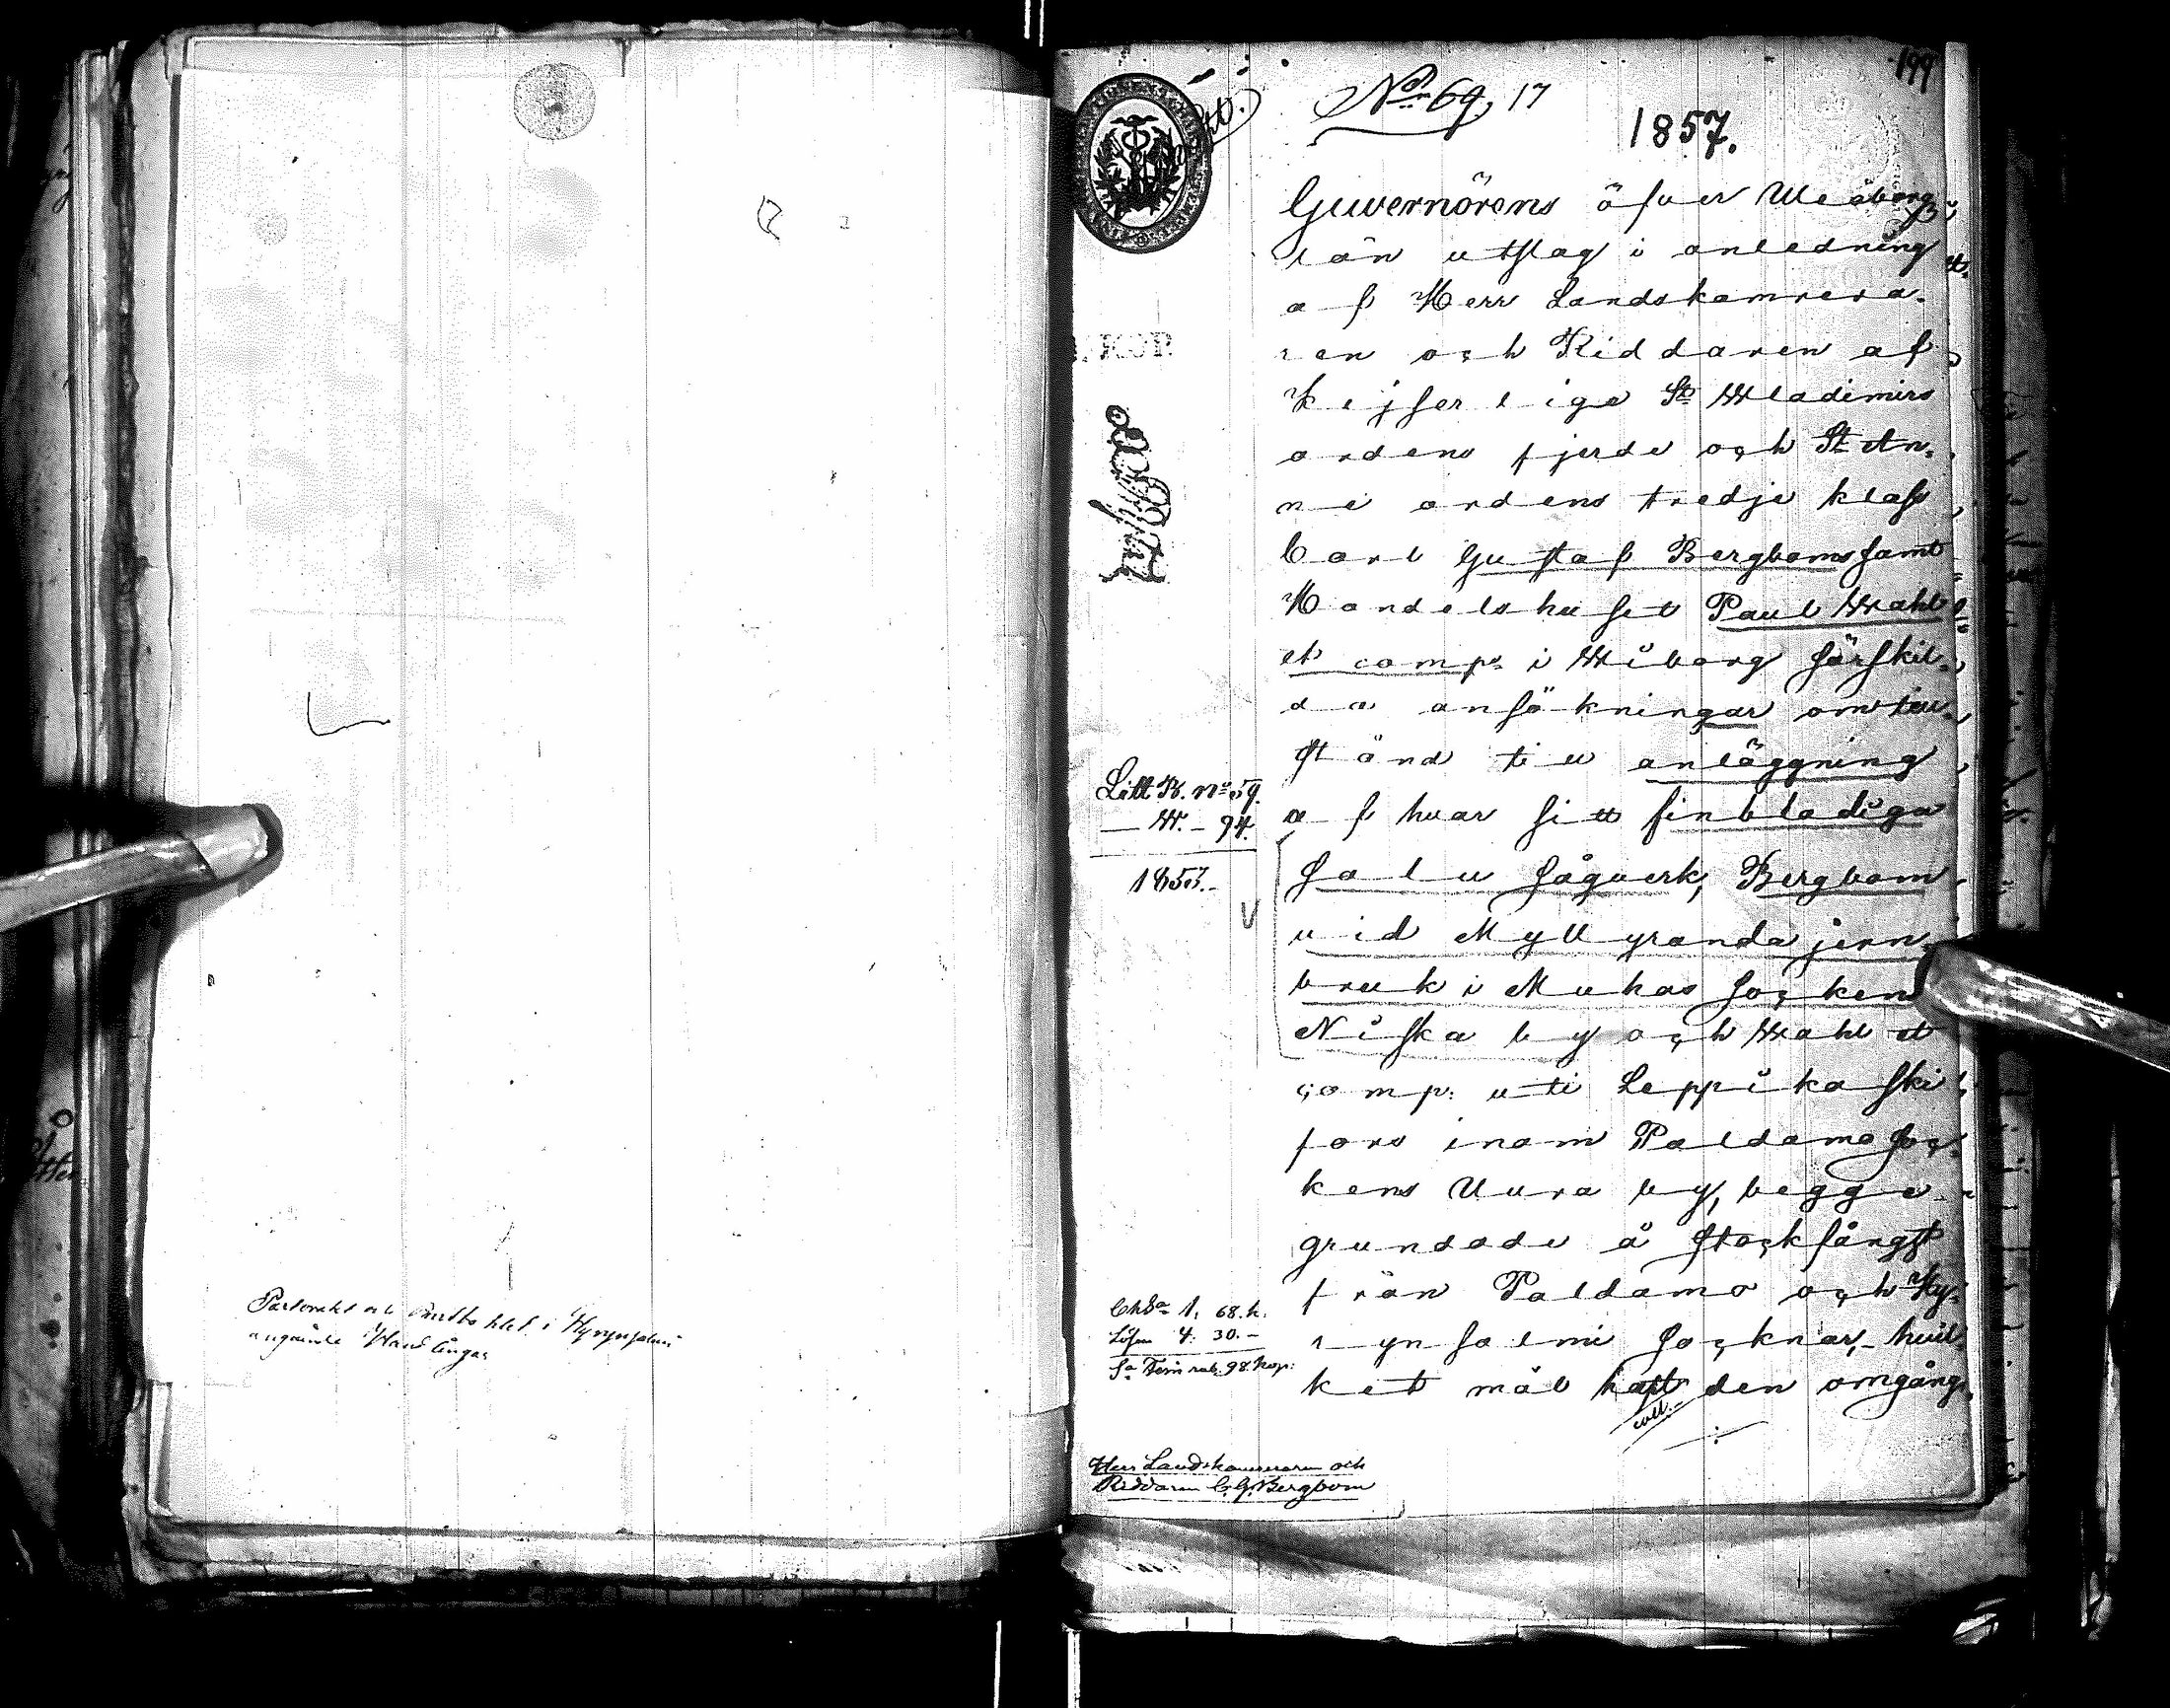 199
No 69. 17
1857.
Guvernörens öfver Uleåborgs
län utslag i anledning
af Herr Landskamrera-
ren och Riddaren af
Kejserliga St. Wladimirs
ordens fjerde och St. An-
ne ordens tredje klass
Carl Gustaf Bergboms samt
Handelshuset Paul Wahl
et comp. i Wiborg särskil-
da ansökningar om till-
stånd till anläggning
af hvar sitt finbladiga
salu sågverk, Bergbom
vid Myllyranda jern-
bruk i Muhos sockens
Niska by och Wahl et
comp: uti Leppikoski
fors inom Paldamo soc-
kens Uura by, begge
grundade å stockfångst
från Paldamo och Hy-
rynsalmi socknar, hvil-
ket mål haft den omgång,
coll.
Litt B. No 59.
— W. — 94.
1857.
Chta 1, 68. k.
Lösen 4. 30. —
Sa Fem rub. 98. kop:
Herr Landskamreraren och
Riddaren C. G. Bergbom
i Hyrynsalmi
angående